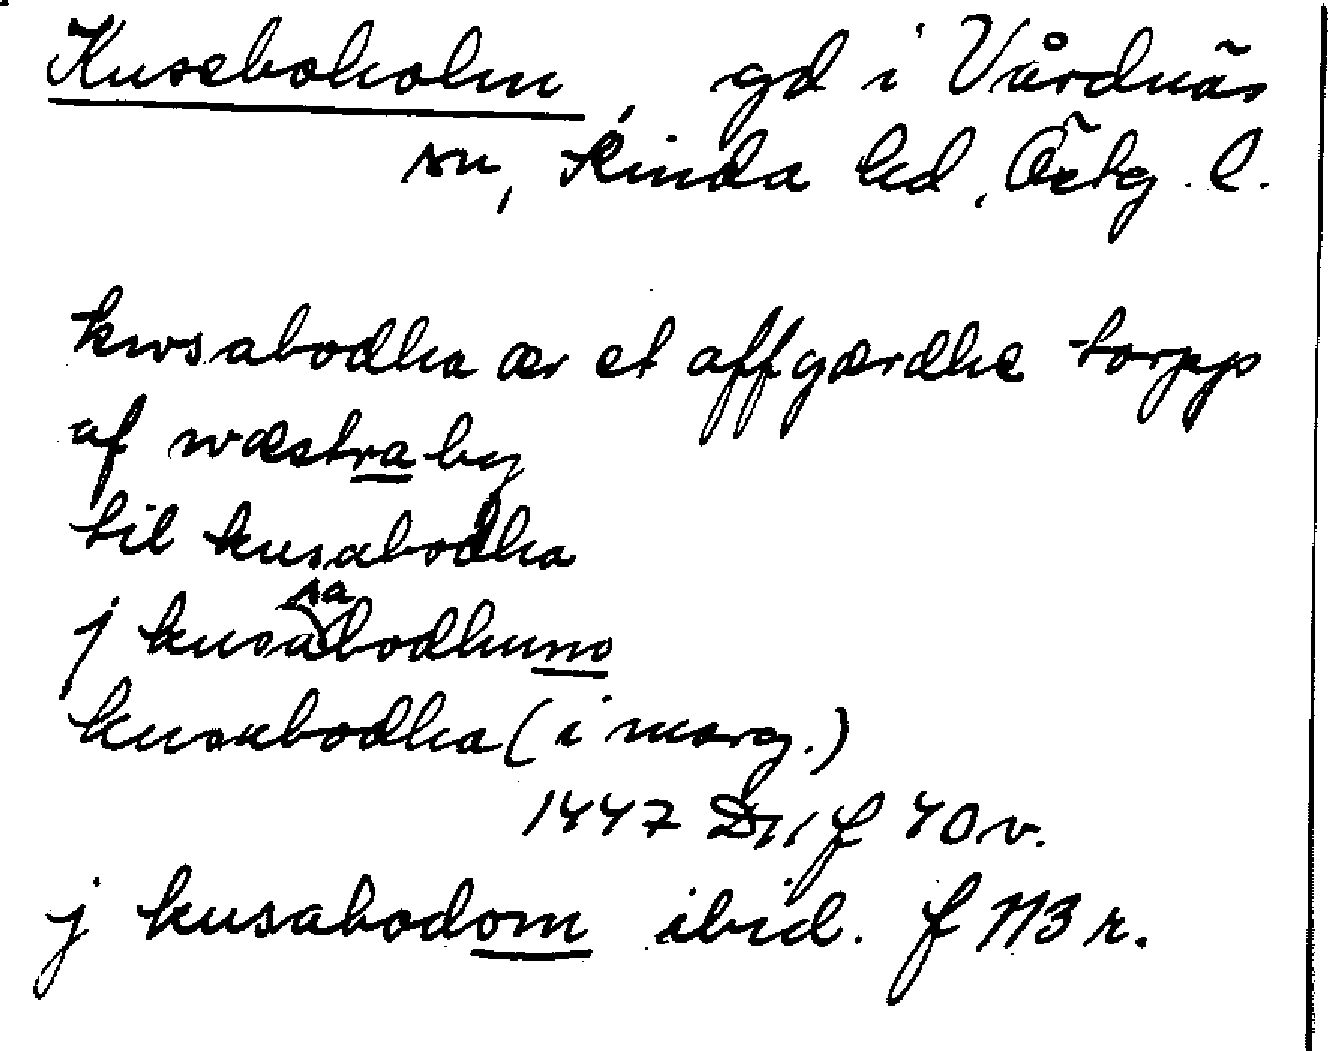 Kuseboholm, gd i Vårdnäs
sn, Kinda hd, Östg. l.
kwsabodha ær et affgærdhe torpp
af wæstra by
til kusabodha
j kusasabodhumo
kusabodha (i marg.)
1447 D11 f 40 v.
j kusabodom ibid. f 113 r.